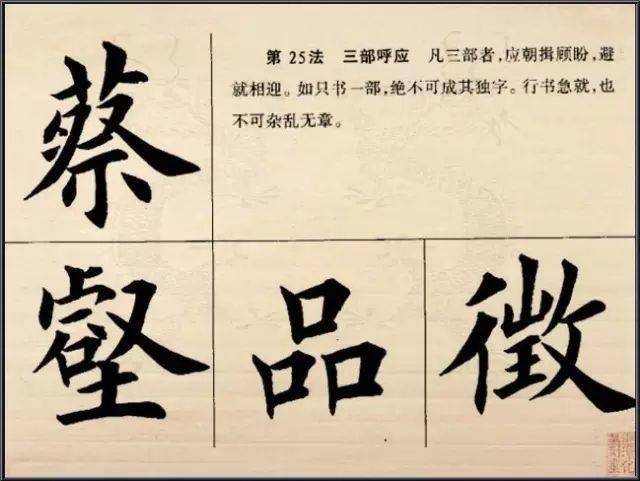 第25法 三部呼应 凡三部者，应朝揖顾盼，避
就相迎。如只书一部，绝不可成其独字。行书急就，也
不可杂乱无章。
蔡
壑 品 徵